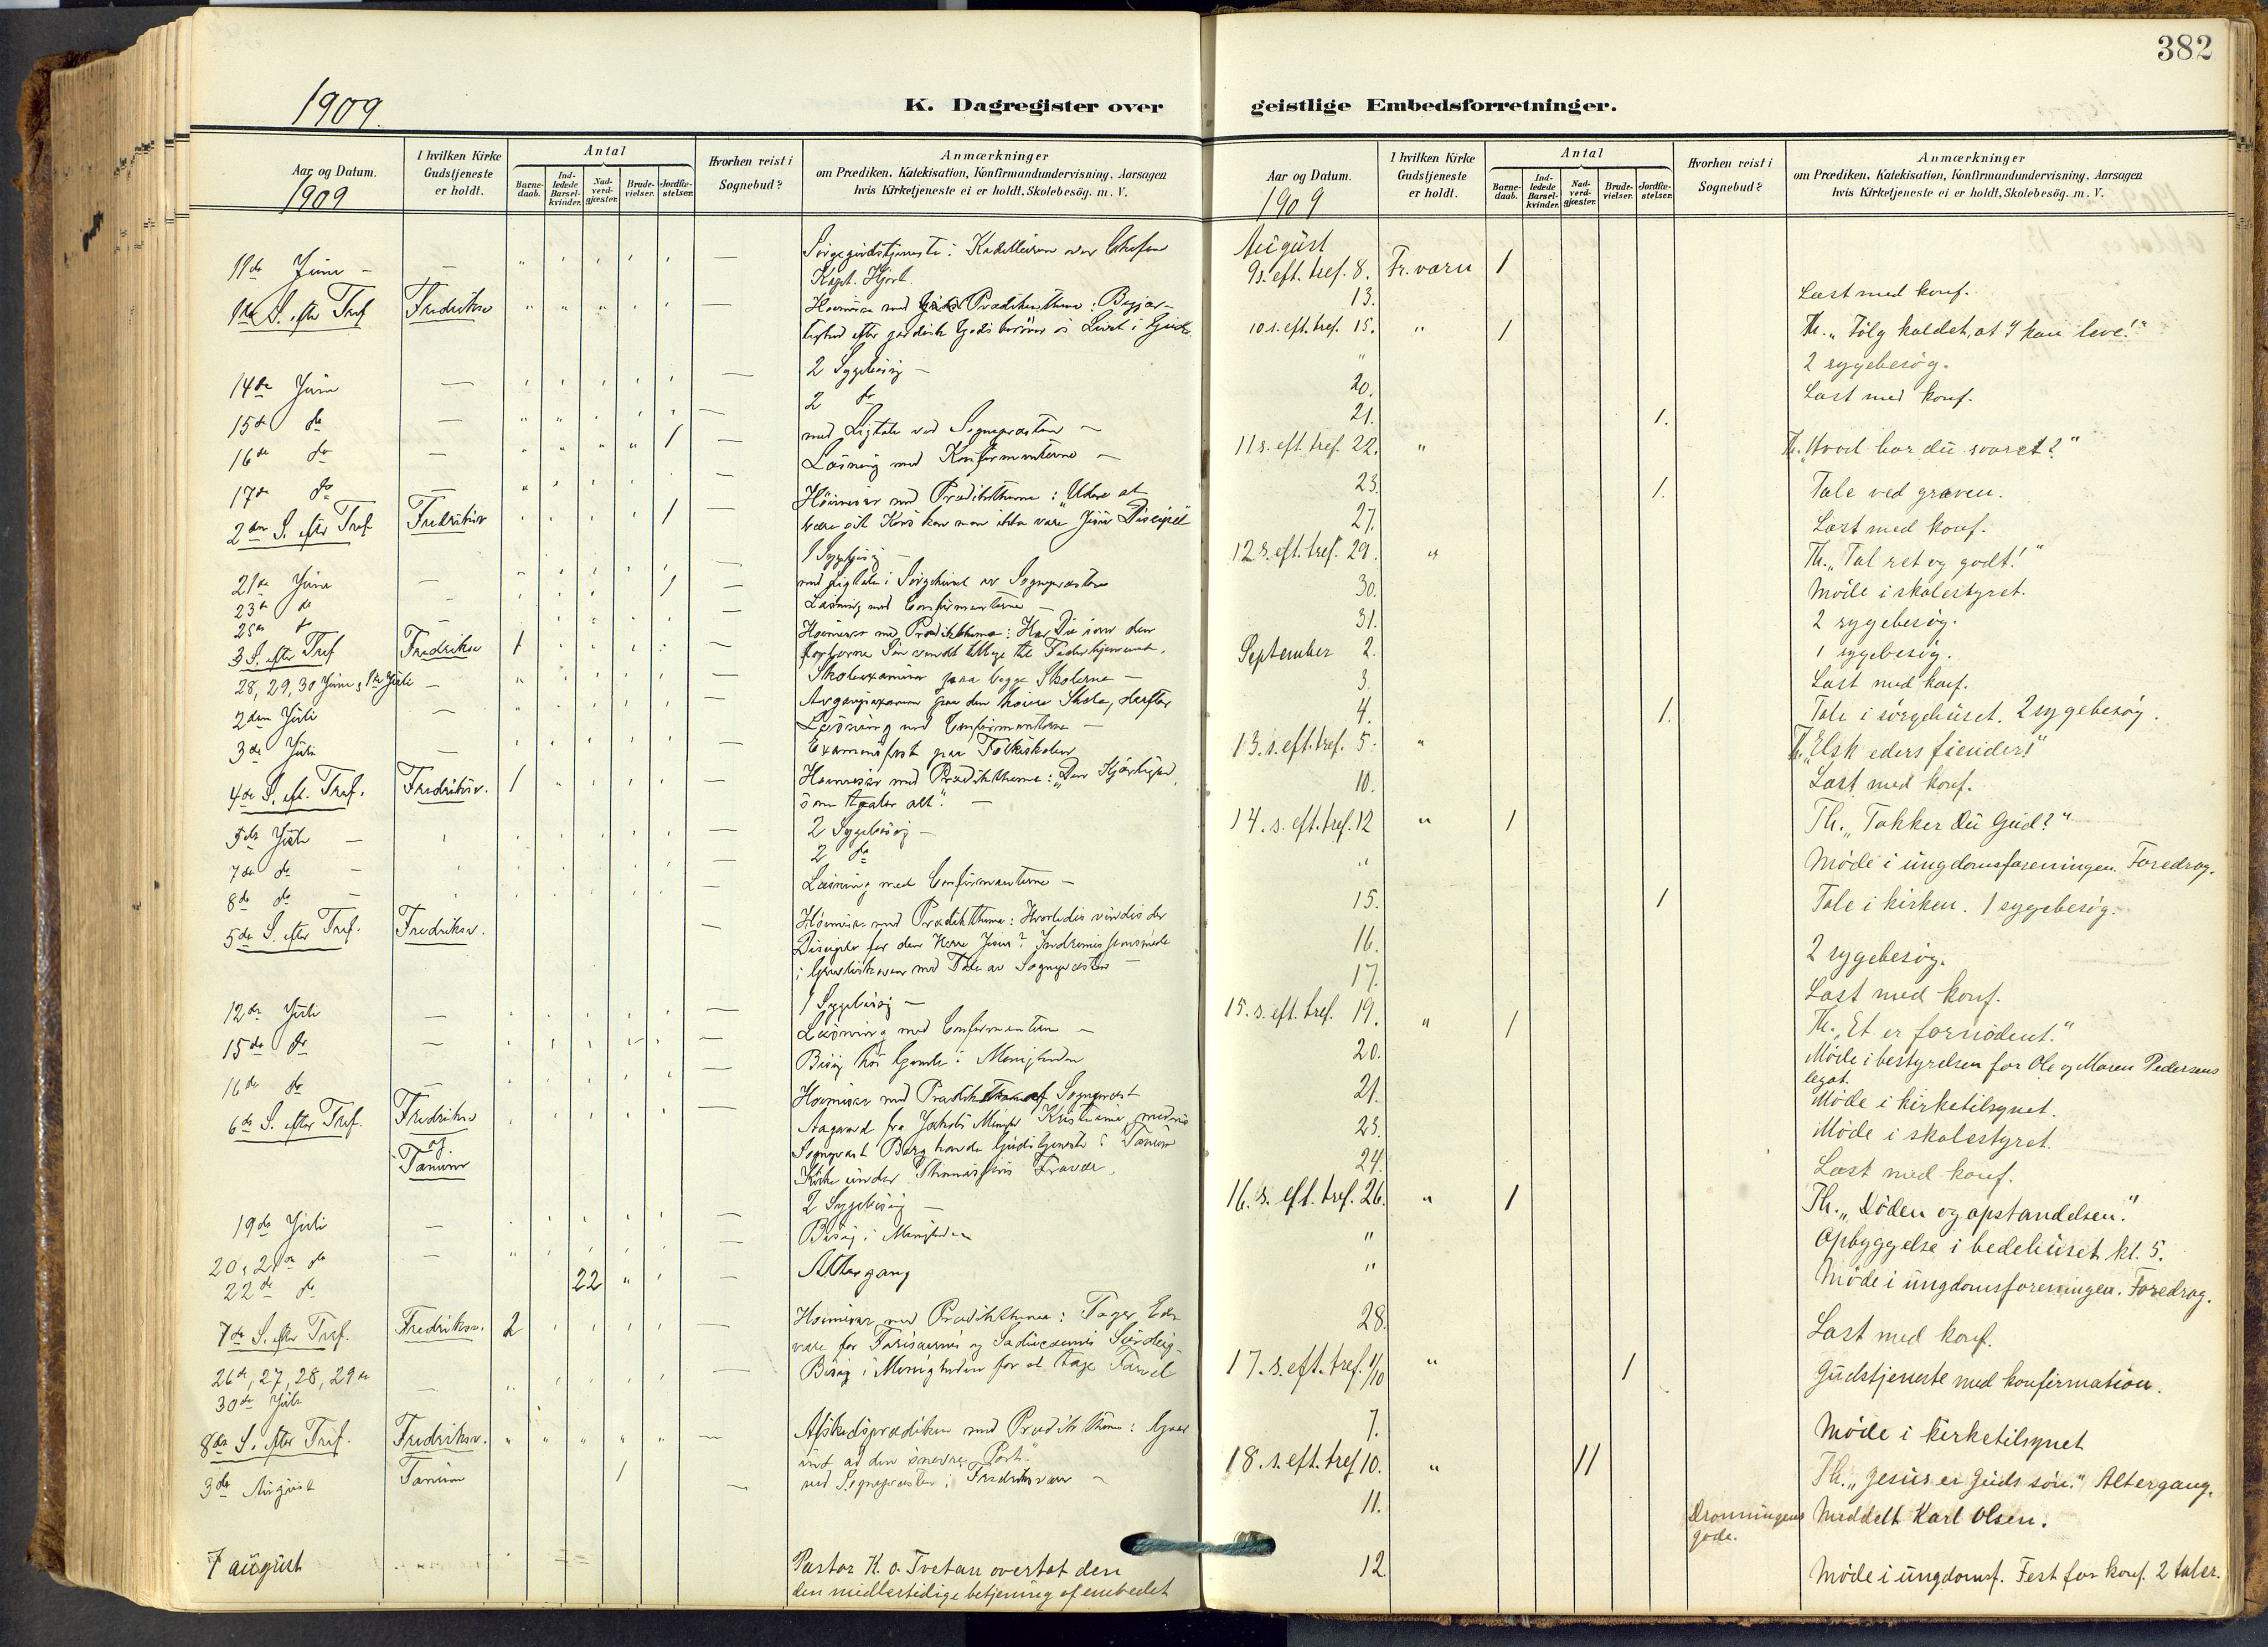 382
1909.
K. Dagregister over geistlige Embedsforretninger.
Aar og Datum.
1909
I hvilken Kirke Gudstjeneste er holdt.
Antal
Barnedaab.
Indledede Barselkvinder.
Nadverdgjæster.
Brudevielser.
Jordfæstelser.
Hvorhen reist i Sognebud?
Anmærkninger
om Prædiken, Katekisation, Konfirmandundervisning, Aarsagen
hvis Kirketjeneste ei er holdt, Skolebesög. m. V.
11te Juni — Sørgegudstjeneste i over Chefen
Kapt. Hjort.
1ste S. efter Tref Fredriksv Høimesse med Prædikenthema: Begjær-
lighed efter jordisk Gods berøver os Livet i Gud.
14de Juni — 2 Sygebesøg —
15de do — 2 do
16de do — 1 — med Ligtale ved Sognepræsten —
17de do — Læsning med Konfirmanterne —
2den S. efter Tref Fredriksv 1 Høimesse med Prædikthema: Uden at
bære sit Kors kan man ikke være Jesu Discipel
21de Juni — 1 Sygebesøg —
23de do — 1 — med Ligtale i Sørgehuset av Sognepræsten
25de do — Læsning med Confirmanterne —
3 S. efter Tref Fredriksv 1 Høimesse med Prædikthema: Har Du som den
fortorne Søn vendt tilbage til Faderhjemmet.
28, 29, 30 Juni, 1ste Juli — Skoleexamina paa begge Skolerne —
2den Juli — Avgangsexamen paa den høiere Skole, derefter
Læsning med Confirmanterne —
3de Juli — Examensfest paa Folkeskolen
4de S. eft. Tref. Fredriksv. 1 Høimesse med Prædikthema: „Den Kjærlighed,
som taaler alt". —
5te Juli — 2 Sygebesøg —
7de do — 2 do
8de do — Læsning med Confirmanterne —
5te S. efter Tref. Fredriksv. — Høimesse med Prædikthema: Hvorledes vindes der
Disciple for den Herre Jesus? Indremissionsmøde
i med Tale av Sognepræsten —
12te Juli — 1 Sygebesøg —
15de do — Læsning med Confirmanterne —
16de do — Besøg hos Gamle i Menigheden
6te S. efter Tref. Fredriksv
og
Tanum
Høimesse med Prædik af Sognepræst
Aagaard fra Jakobs Menighed Kristiania, medens
Sognepræst Berg havde Gudstjeneste i Tanum
Kirke under Fravær.
19de Juli — 2 Sygebesøg —
20, 21de do — Besøg i Menigheden
22de do 22 — Altergang
7de S. efter Tref. Fredriksv. 2 Høimesse med Prædikthema: Tager Eder
vare for Farisæernes og Sadducæernes Surdeig.
26de, 27, 28, 29de — Besøg i Menigheden for at tage Farvel
30de Juli
8de S. efter Tref. Fredriksv. — Afskedsprædiken med Prædikthema: Gaar
ind ad den snevre Port".
3de August Tanum 1 — ved Sognepræsten i Fredriksværn —
7 august Pastor K. O. Tvetan overtok den
den midlertidige betjening af embedet
Aar og Datum.
1909
I hvilken Kirke Gudstjeneste er holdt.
Antal
Barnedaab.
Indledede Barselkvinder.
Nadverdgjæster.
Brudevielser.
Jordfæstelser.
Hvorhen reist i Sognebud?
Anmærkninger
om Prædiken, Katekisation, Konfirmandundervisning, Aarsagen
hvis Kirketjeneste ei er holdt, Skolebesög. m. V.
August
9 s. eft. tref. 8. Fr.værn 1
13. Læst med konf.
10. s. eft. tref. 15. " 1 Th. „Følg kaldet, at I kan leve!"
" 2 sygebesøg.
20. Læst med konf.
21. 1.
11 s. eft. tref. 22. " Th. „Hvad har du svaret?"
23. 1. Tale ved graven.
27. Læst med konf.
12 s. eft. tref. 29. " Th. „Tal ret og godt!"
30. Møde i skolestyret.
31. 2 sygebesøg.
September 2. 1 sygebesøg.
3. Læst med konf.
4. 1. Tale i sørgehuset. 2 sygebesøg.
13. s. eft. tref. 5. " Th. „Elsk eders fiender!"
10. Læst med konf.
14. s. eft. tref. 12 " 1 Th. „Takker du Gud?"
" Møde i ungdomsforeningen. Foredrag.
15. 1 Tale i kirken. 1 sygebesøg.
16. 2 sygebesøg.
17. Læst med konf.
15. s. eft. tref. 19. " 1 Th. „Et er fornødent."
20. Møde i bestyrelsen for Ole og Maren Pedersens
legat.
21. Møde i kirketilsynet.
23. Møde i skolestyret.
24. Læst med konf.
16. s. eft. tref. 26. " 1 Th. „Døden og opstandelsen."
" Opbyggelse i bedehuset kl. 5.
" Møde i ungdomsforeningen. Foredrag.
28. Læst med konf.
17. s. eft. tref. " 1 Gudstjeneste med konfirmation.
7. Møde i kirketilsynet
18. s. eft. tref 10. " 11 Th. „Jesus er Guds søn." Altergang.
11. Dronningens
gade. Meddelt Karl Olsen.
12 Møde i ungdomsf. Fest for konf. 2 taler.